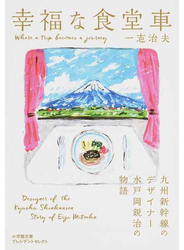 幸福な食堂車
一志治夫
Where a trip becomes a journey
九州新幹線の
デザイナー
水戸岡鋭治の
物語
Designers of the
Kyushu Shinkansen
Story of Eiji Mitooka
小学館文庫
プレジデントセレクト